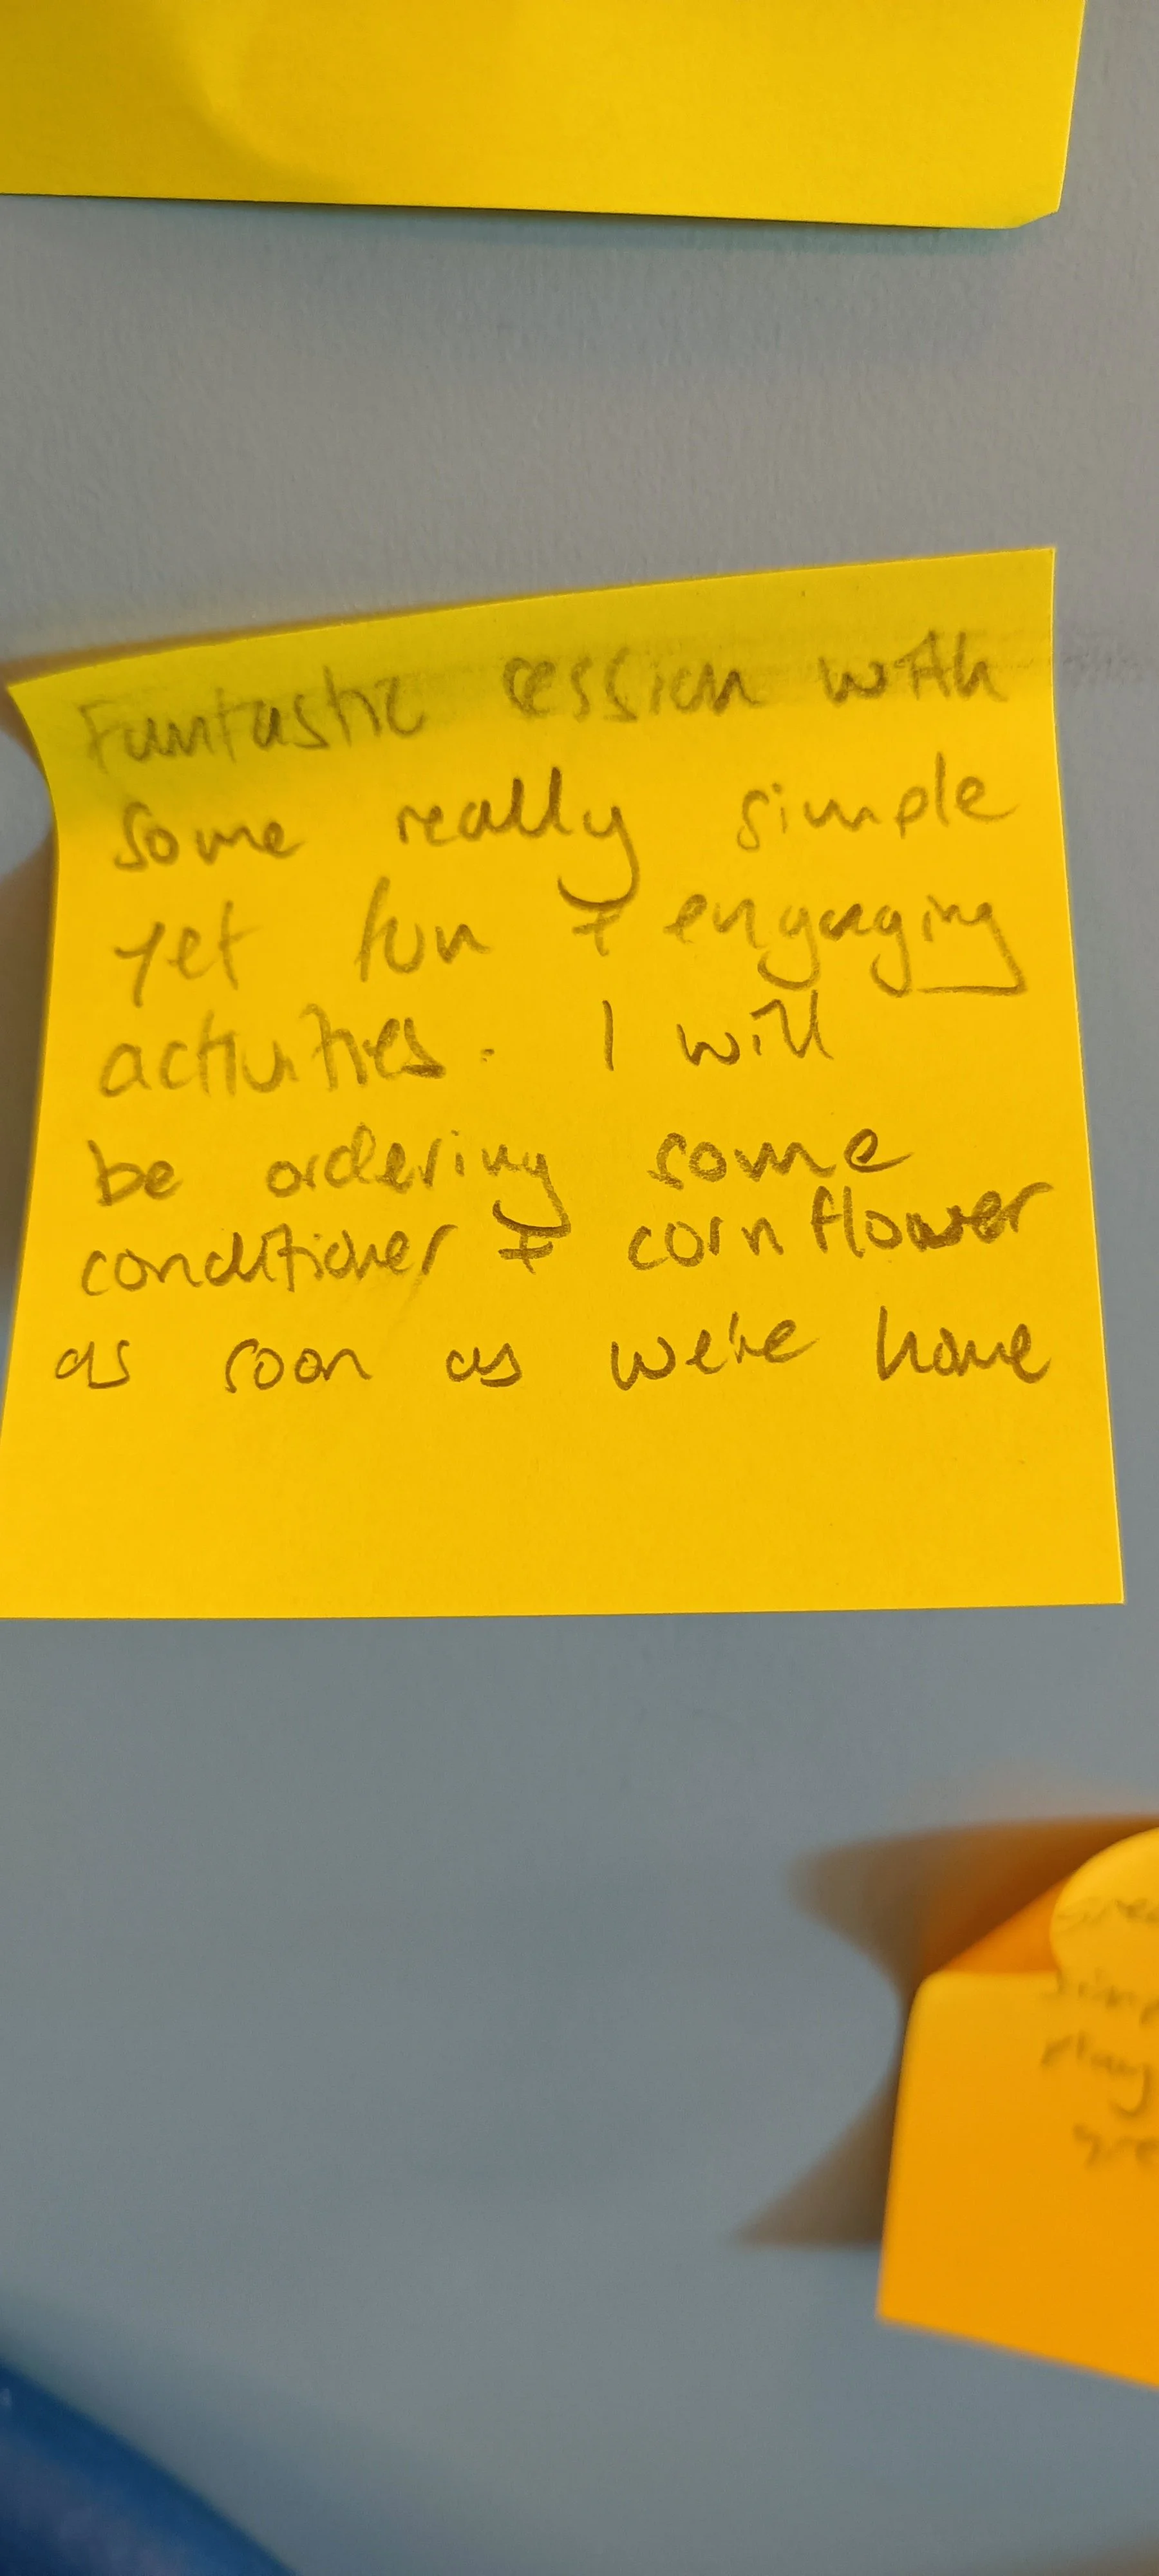 Fantastic session with
some really simple
yet fun + engaging
activities. I will
be ordering some
conditioner + corn flower
as soon as we're home